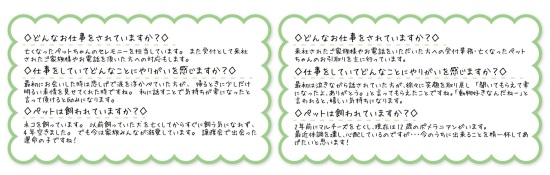 ◇どんなお仕事をされていますか？◇
亡くなったペットちゃんのセレモニーを担当しています。また受付として来社
されたご家族様やお電話を頂いた方への対応もします。
◇仕事をしていてどんなことにやりがいを感じますか？◇
最初にお会いした時は悲しげで涙を浮かべていた方が、帰るときに少しだけ
明るい表情を見せてくれた時ですね。私に話すことで気持ちが楽になったと
言って頂けると励みになります。
◇ペットは飼われていますか？◇
ネコを飼っています。以前飼っていた犬を亡くしてからすぐに飼う気になれず、
4年空きました。でも今は家族みんなが溺愛しています。譲渡会で出会った
運命の子ですね！
◇どんなお仕事をされていますか？◇
来社されたご家族様やお電話をいただいた方への受付業務・亡くなったペット
ちゃんのお引取りを主に行っています。
◇仕事をしていてどんなことにやりがいを感じますか？◇
最初は泣きながら話されていた方が、徐々に笑顔を取り戻し「聞いてもらえて楽
になったよ、ありがとう。」と言ってもらえたことですね。「動物好きなんだね～」と
言われると、嬉しい気持ちになります。
◇ペットは飼われていますか？◇
2年前にマルチーズを亡くし、現在は12歳のポメラニアンがいます。
最近体調を崩し、心配しているのですが・・・今のうちに出来ることを精一杯してあ
げたいと思います！